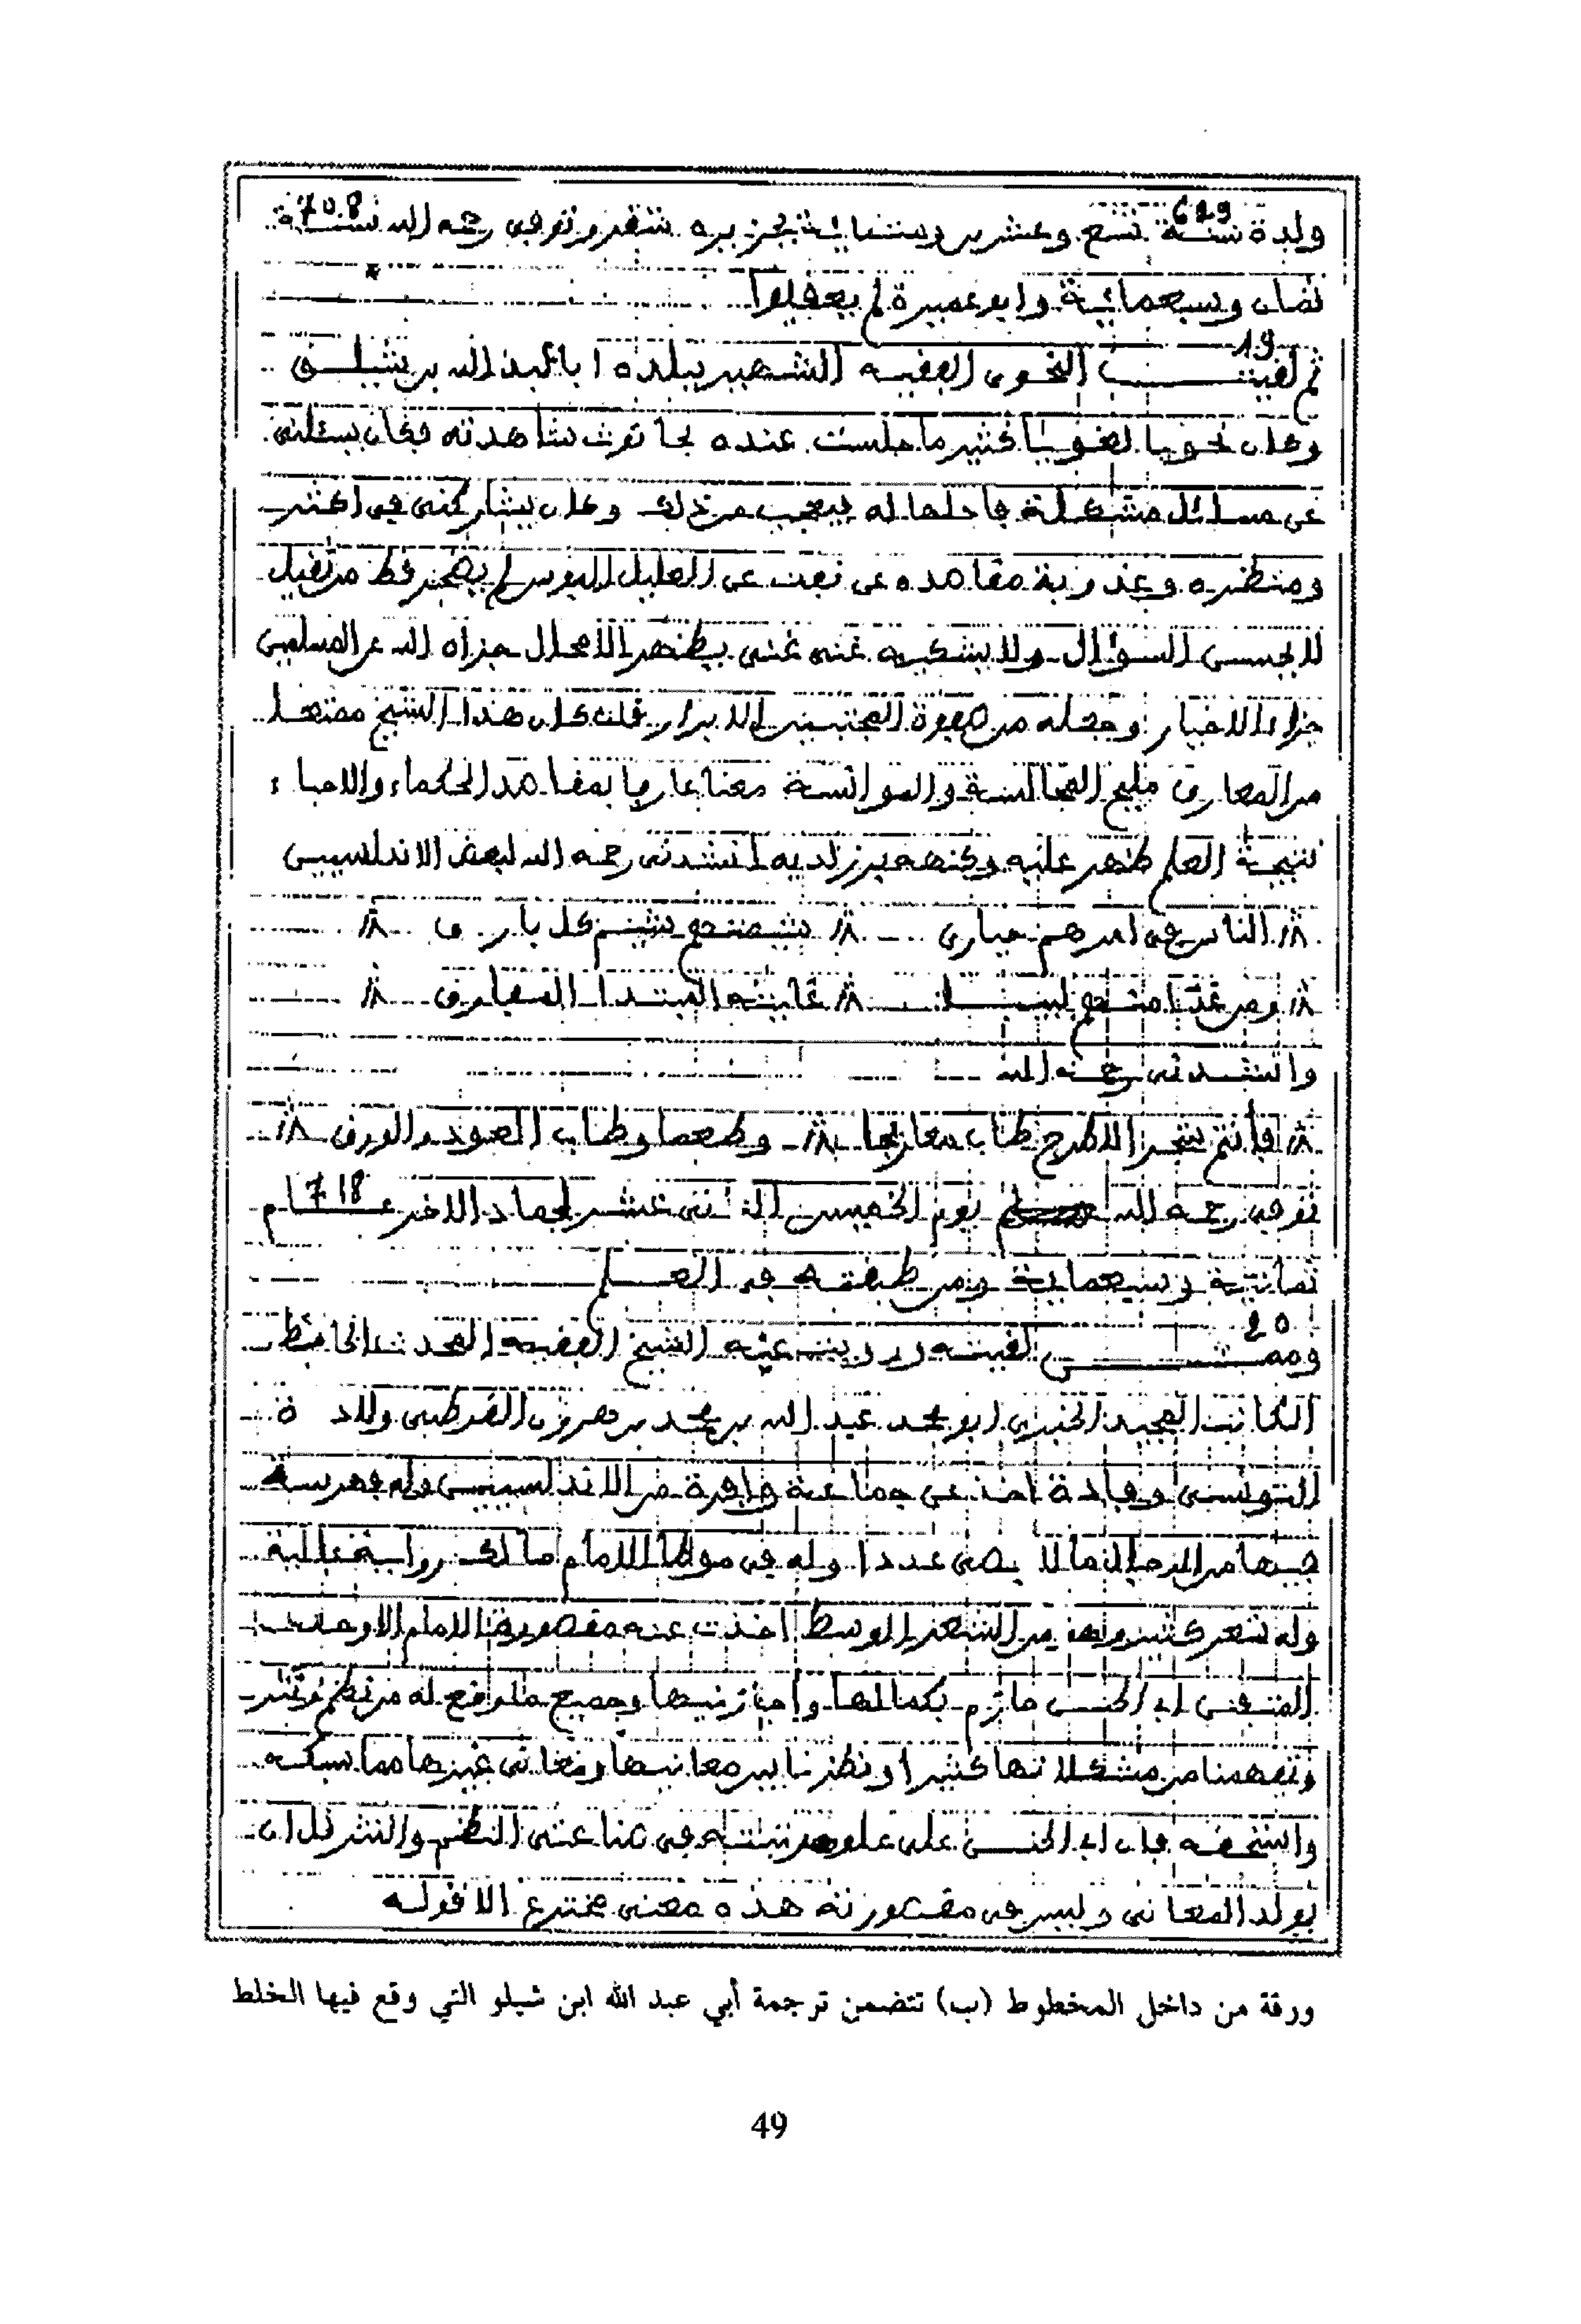 629 708
ولد سنة تسع وعشرين وستماية بجزيره شقر وتوفى رحمه الله سنة
ثمان وسبعمائية وابو عميرة لم يعقلوا
19
ثم لقيت النحوى الفقيه الشهير ببلده ابا عبد الله بن شبلو
وكان نحويا لغويا كثير ما جلست عنده شاهدته فكان يسئلنى
عن مسائل مشكلة فاحلها له يعجب من ذلك وكان يشاركنى فى اكثر
ومنظره وعذوبة مقاصده عن العليل النفس لم يضجر قط من ثقيل
لا يحسن السؤال ولا يشكيه غنى غنى يظهر الاقلال جزاه الله عن المسلمين
جزاء الاخيار وجعله من صفوة المجتبين الابرار قلت كان هذا الشيخ ممتعا
من المعارف مليح المجالسة والموانسة معنا عارفا بمقاصد الحكماء والادباء
نتيجة العلم ظهر عليه لديه انشدنى رحمه الله لبعض الاندلسيين
الناس فى امرهم حيارى
ومن غدا منهم
وانشدنى رحمه الله
فأنتم شجر طاب وطعما وطاب العود والورق
توفى رحمه الله يوم الخميس الثانى عشر لجماد الاخر عام 718
ثمانية وسبعماية ومن طبقته فى العلم
20
وممن لقيته ورويت عنه الشيخ الفقيه المحدث الحافظ
الكاتب المجيد ابو محمد عبد الله بن محمد بن هرون القرطبى ولادة
التونسى وفادة اخذ عن جماعة وافرة من الاندلسيين وله فهرسة
فيها من الرجال ما لا يحصى عددا وله فى موطا الامام مالك رواية عالية
وله شعر كثير من الشعر الوسط اخذت عنه مقصورة الامام الاوحد
المتفنن ابى الحسن حازم بكمالها واجازنيها وجميع ما وقع له من نظم ونثر
وتفهمنا من مشكلاتها كثيرا ونظرنا بين معانيها ومعانى غيرها مما سبكه
واستحقه فان ابا الحسن على علو مرتبته فى صناعتى النظم والنثر
يولد المعانى وليس فى مقصورته هذه معنى مخترع الا قوله
ورقة من داخل المخطوط (ب) تتضمن ترجمة أبي عبد الله ابن شبلو التي وقع فيها الخلط
49